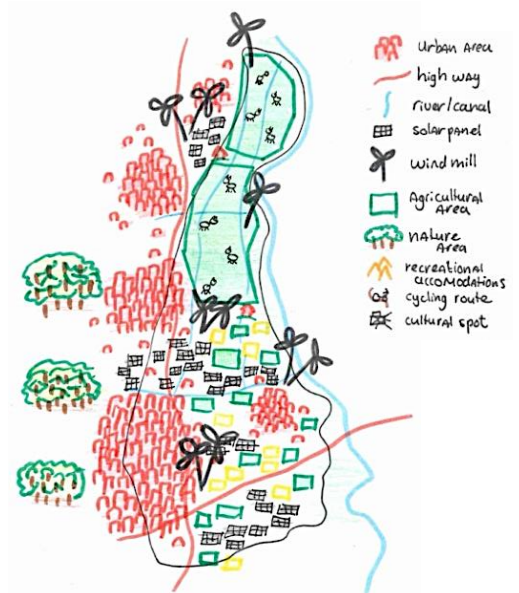 urban Area
high way
river/canal
solar panel
wind mill
Agricultural
Area
nature
Area
recreational
accomodations
cycling route
cultural spot